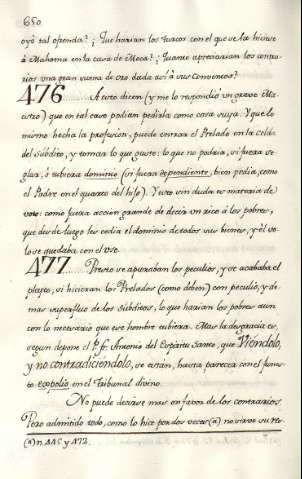 650
oyó tal ofrenda? ¿Que harian los Turcos con el que se la hiciese
á Mahoma en la casa de Meca? ¿Quanto apreciarian los contra-
rios una gran suma de oro dada asi á sus Conventos?
476 A esto dicen (y me lo respondió un grave Ma-
estro) que en tal caso podian pedirla como cosa suya. Y que lo
mismo hecha la profesion, puede entrar el Prelado en la celda
del Súbdito, y tomar lo que guste: lo que no podria, si fuera se-
glar, ó tubiera dominio (si fuera dependiente, bien podia, como
el Padre en el quarto del hijo). Y esto sin duda es materia de
voto: como fuera accion grande de decir un rico á los pobres,
que desde luego les cedia el dominio de todos sus bienes, y él so-
lo se quedaba con el uso.
477 Presto se apuraban los peculios, y se acababa el
pleyto, si hicieran los Prelados (como deben) con peculio, y de-
mas superfluo de los Súbditos, lo que harian los pobres aun
con lo necesario que ese hombre tubiera. Mas la desgracia es,
segun depone el P. fr. Antonio del Espíritu Santo, que Viendolo,
y no contradiciéndolo, se están, hasta parezca con el funes-
to espolio en el Tribunal divino.
No puede decirse mas en favor de los contrarios.
Pero admitido todo, como lo hice por dos veces (a) no sirve su res-
(a) n. 445 y 472.